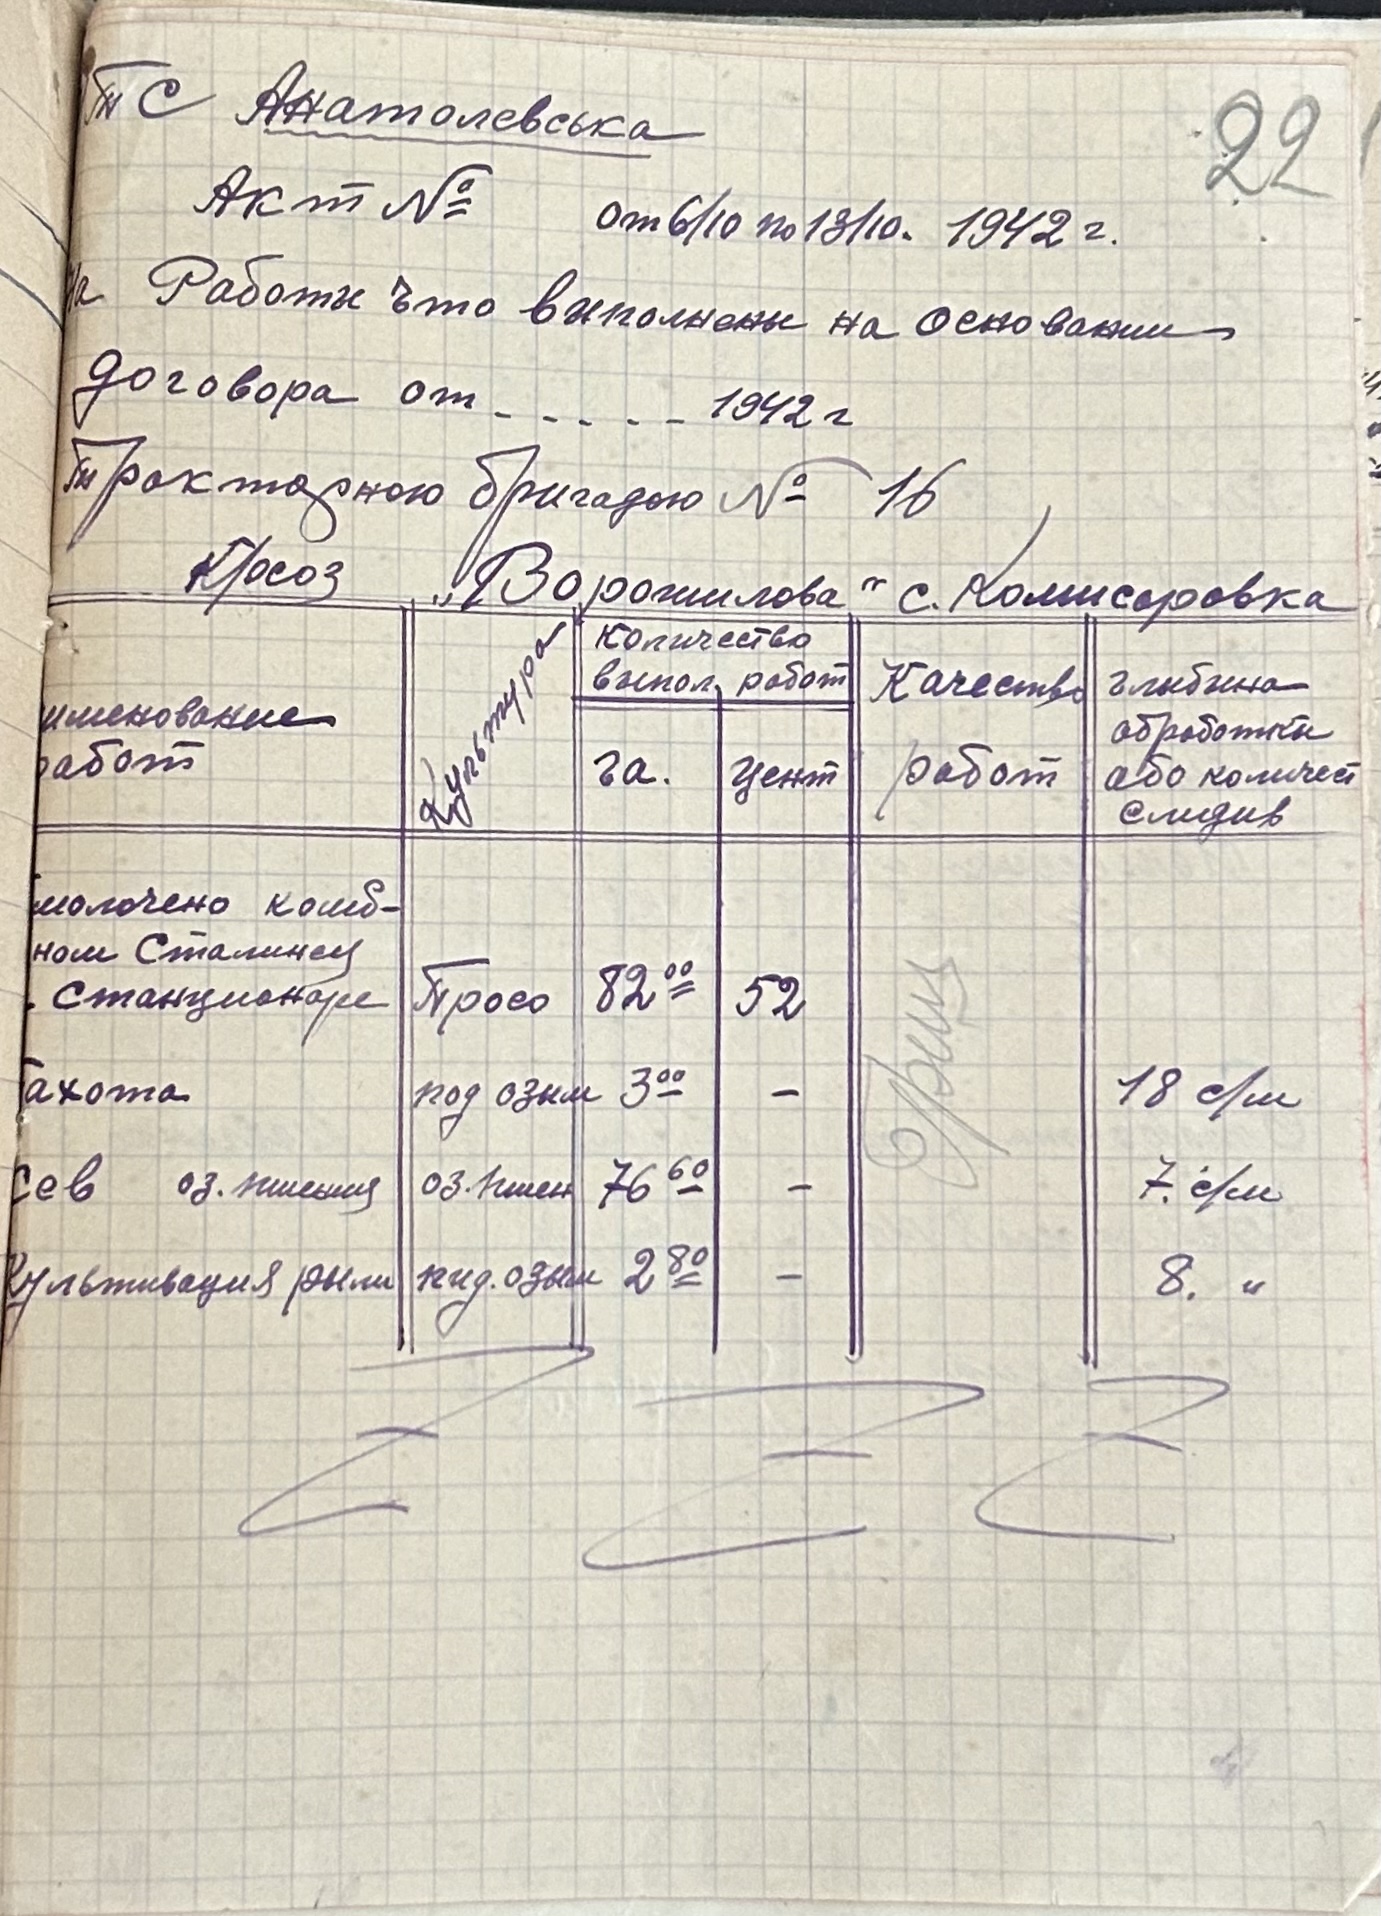 ТС Анатолевська
22
Акт № от 6/10 по 13/10. 1942 г.
на Работы что выполнены на основании
договора от - - - - - 1942 г
Тракторною бригадою № 16
"Ворошилова" с. Комисаровка
именование работ
Культура
Количество выпол. работ
га.
цент
Качество работ
глибина обработки або количест слидив
молочено комб-
ном Сталинец
Станционаре Просо 82 00 52
ахота под озым 3 00 - 18 с/м
сев оз. пшениц оз. пшен 76 60 - 7. с/м
Культивация пид. озым 2 80 - 8. "